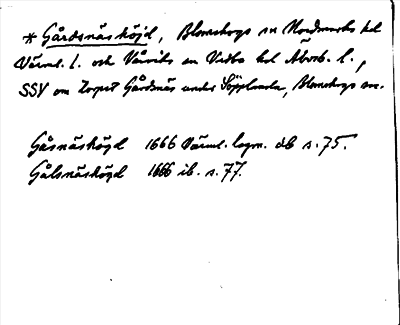 * Gårdsnäsköjd, Blomskogs sn Nordmarks hd
Värml. l. och Vårviks sn Vedbo hd Älvsb. l.,
SSV om torpet Gårdnäs under Töpplanda, Blomskogs sn.
Gåsnäsköyd 1666 Värml. lagm. db s. 75.
Gålsnäsköyd 1666 ib. s. 77.